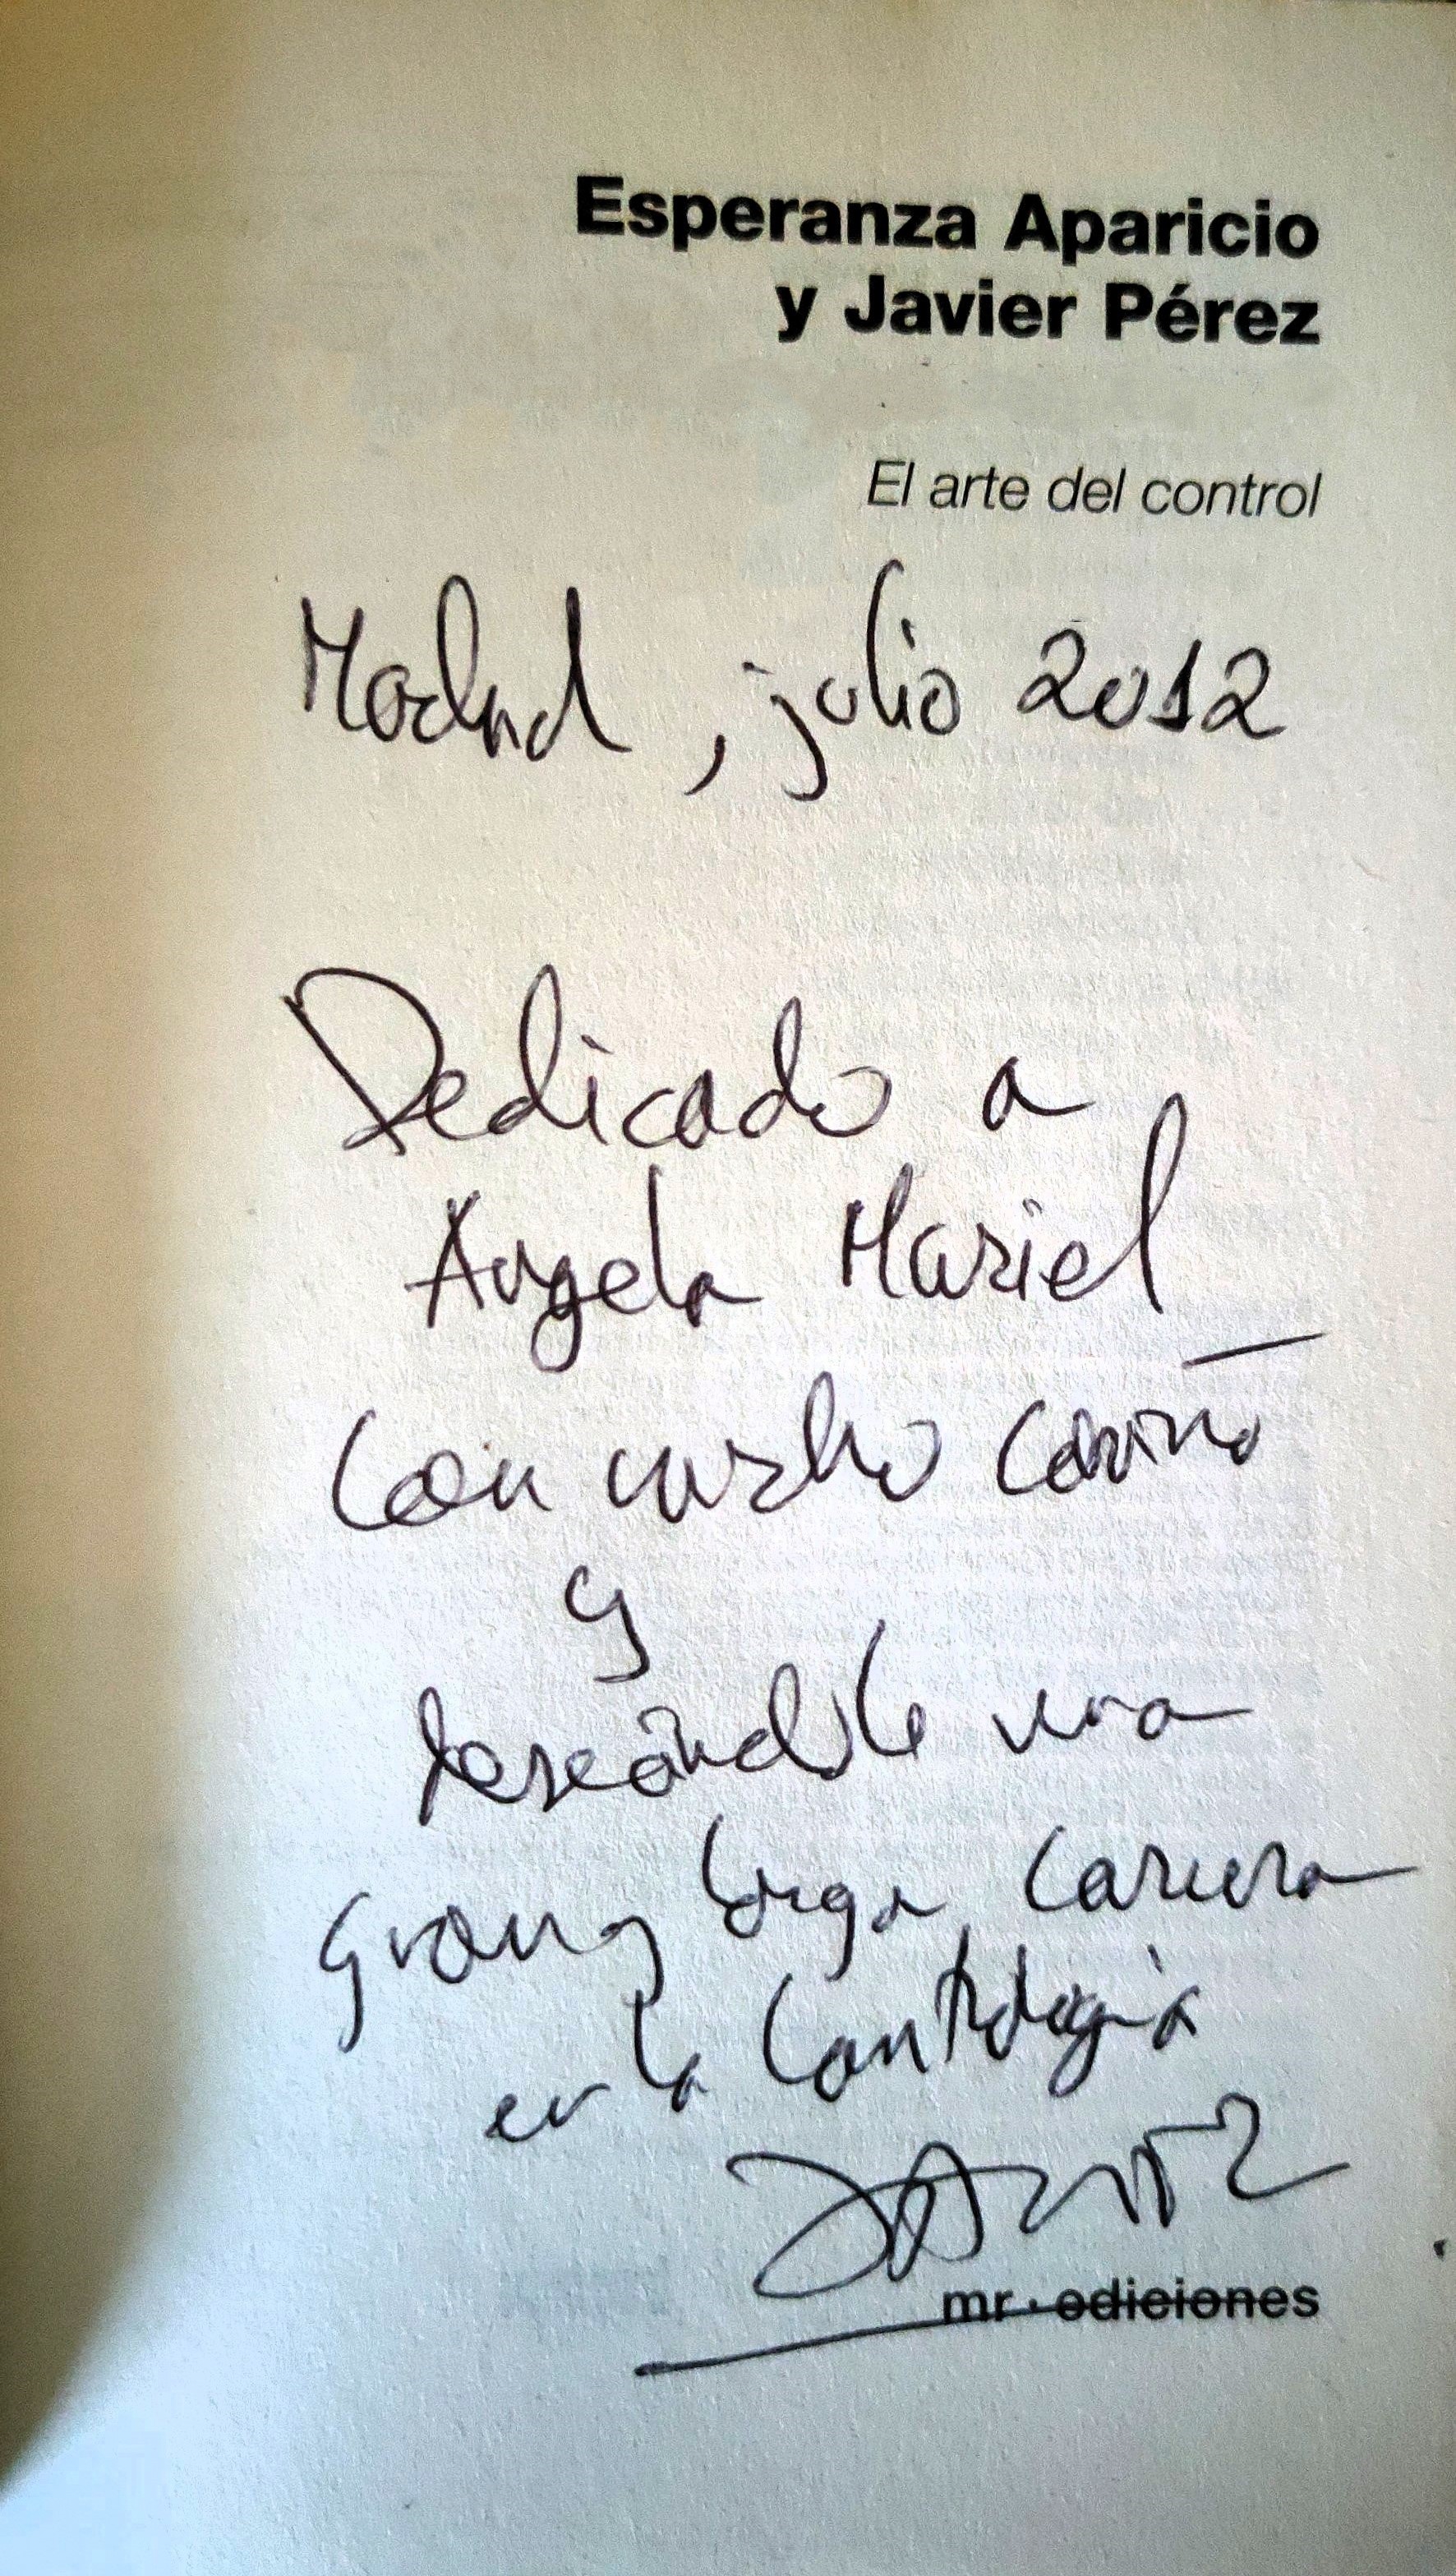 Esperanza Aparicio
y Javier Pérez
El arte del control
Madrid, julio 2012
Dedicado a
Angela Mariel
Con mucho cariño
y
deseándole una
gran y larga carrera
en la Cantología
mr · ediciones